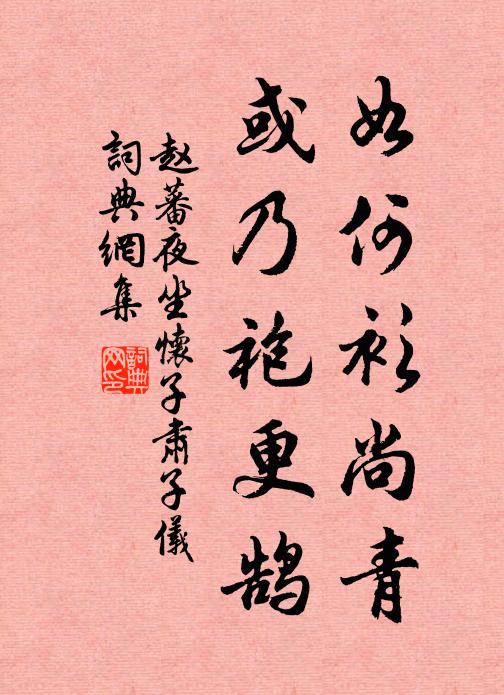 如何衫尚青
或乃袍更鹄
赵蕃夜坐懷子肅子儀
詞典網集
詞典網印